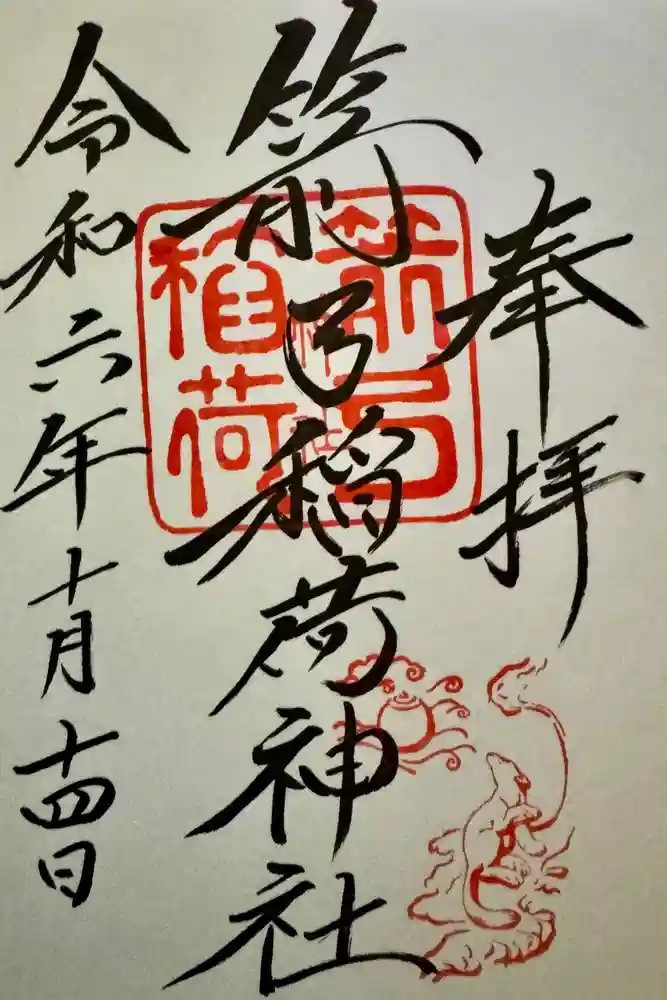 奉拝
箭弓稲荷神社
箭弓
稲荷
神社
令和六年十月十四日